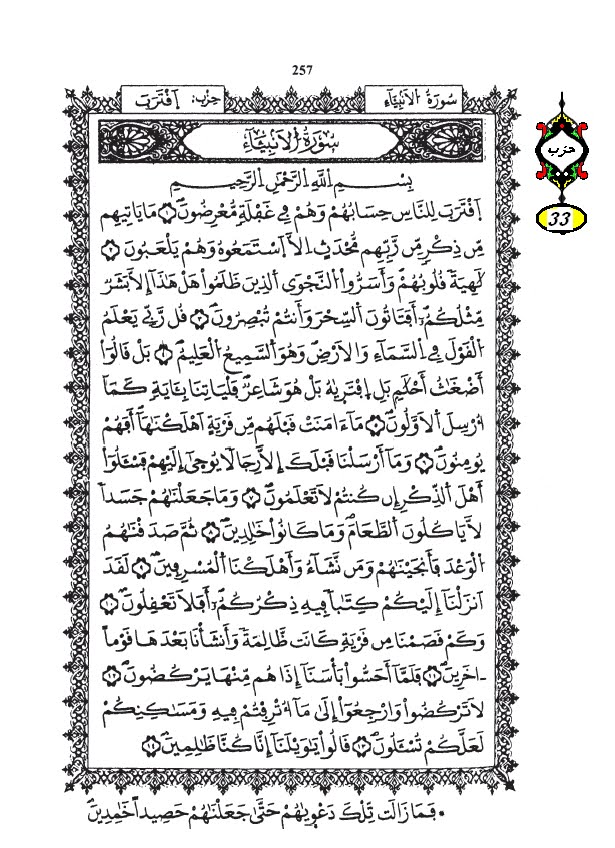 257
سُورَةُ الاَنبِيَاءِ
حِزب: اِقْتَرَبَ
حزب
33
سُورَةُ الاَنبِيَاءِ
بِسْمِ اِللَّهِ اِلرَّحْمَٰنِ اِلرَّحِيمِ
اِقْتَرَبَ لِلنَّاسِ حِسَابُهُمْ وَهُمْ فِے غَفْلَةٖ مُّعْرِضُونَۖ ١ مَا يَاتِيهِم
مِّن ذِكْرٖ مِّن رَّبِّهِم مُّحْدَثٍ اِلَّا اَسْتَمَعُوهُ وَهُمْ يَلْعَبُونَ ٢
لَٰهِيَةٗ قُلُوبُهُمْۖ وَأَسَرُّواْ النَّجْوَى اَلذِينَ ظَلَمُواْ هَلْ هَٰذَآ إِلَّا بَشَرٞ
مِّثْلُكُمُۥٓ أَفَتَاتُونَ اَلسِّحْرَ وَأَنتُمْ تُبْصِرُونَۖ ٣ قُل رَّبِّے يَعْلَمُ
اُلْقَوْلَ فِے السَّمَآءِ وَالَارْضِۖ وَهُوَ اَلسَّمِيعُ اُلْعَلِيمُۖ ٤ بَلْ قَالُوٓاْ
أَضْغَٰثُ أَحْلَٰمِۢ بَلِ اِفْتَر۪يٰهُ بَلْ هُوَ شَاعِرٞۖ فَلْيَاتِنَا بِـَٔايَةٖ كَمَآ
أُرْسِلَ اَلَاوَّلُونَۖ ٥ مَآ ءَامَنَتْ قَبْلَهُم مِّن قَرْيَةٍ اَهْلَكْنَٰهَآۖ أَفَهُمْ
يُومِنُونَۖ ٦ وَمَآ أَرْسَلْنَا قَبْلَكَ إِلَّا رِجَالاٗ يُوح۪ىٰٓ إِلَيْهِمْ فَسْـَٔلُوٓاْ
أَهْلَ اَلذِّكْرِ إِن كُنتُمْ لَا تَعْلَمُونَۖ ٧ وَمَا جَعَلْنَٰهُمْ جَسَداٗ
لَّا يَاكُلُونَ اَلطَّعَامَۖ وَمَا كَانُواْ خَٰلِدِينَۖ ٨ ثُمَّ صَدَقْنَٰهُمُ
اُلْوَعْدَ فَأَنجَيْنَٰهُمْ وَمَن نَّشَآءُ وَأَهْلَكْنَا اَلْمُسْرِفِينَۖ ٩ لَقَدَ
اَنزَلْنَآ إِلَيْكُمْ كِتَٰباٗ فِيهِ ذِكْرُكُمُۥٓۖ أَفَلَا تَعْقِلُونَۖ ١٠
وَكَمْ قَصَمْنَا مِن قَرْيَةٖ كَانَت ظَّالِمَةٗ وَأَنشَأْنَا بَعْدَهَا قَوْماً
اٰخَرِينَۖ ١١ فَلَمَّآ أَحَسُّواْ بَأْسَنَآ إِذَا هُم مِّنْهَا يَرْكُضُونَۖ ١٢
لَا تَرْكُضُواْ وَارْجِعُوٓاْ إِلَىٰ مَآ أُتْرِفْتُمْ فِيهِ وَمَسَٰكِنِكُمْ
لَعَلَّكُمْ تُسْـَٔلُونَۖ ١٣ قَالُواْ يَٰوَيْلَنَآ إِنَّا كُنَّا ظَٰلِمِينَۖ ١٤
• فَمَا زَالَت تِّلْكَ دَعْو۪يٰهُمْ حَتَّىٰ جَعَلْنَٰهُمْ حَصِيداً خَٰمِدِينَۖ